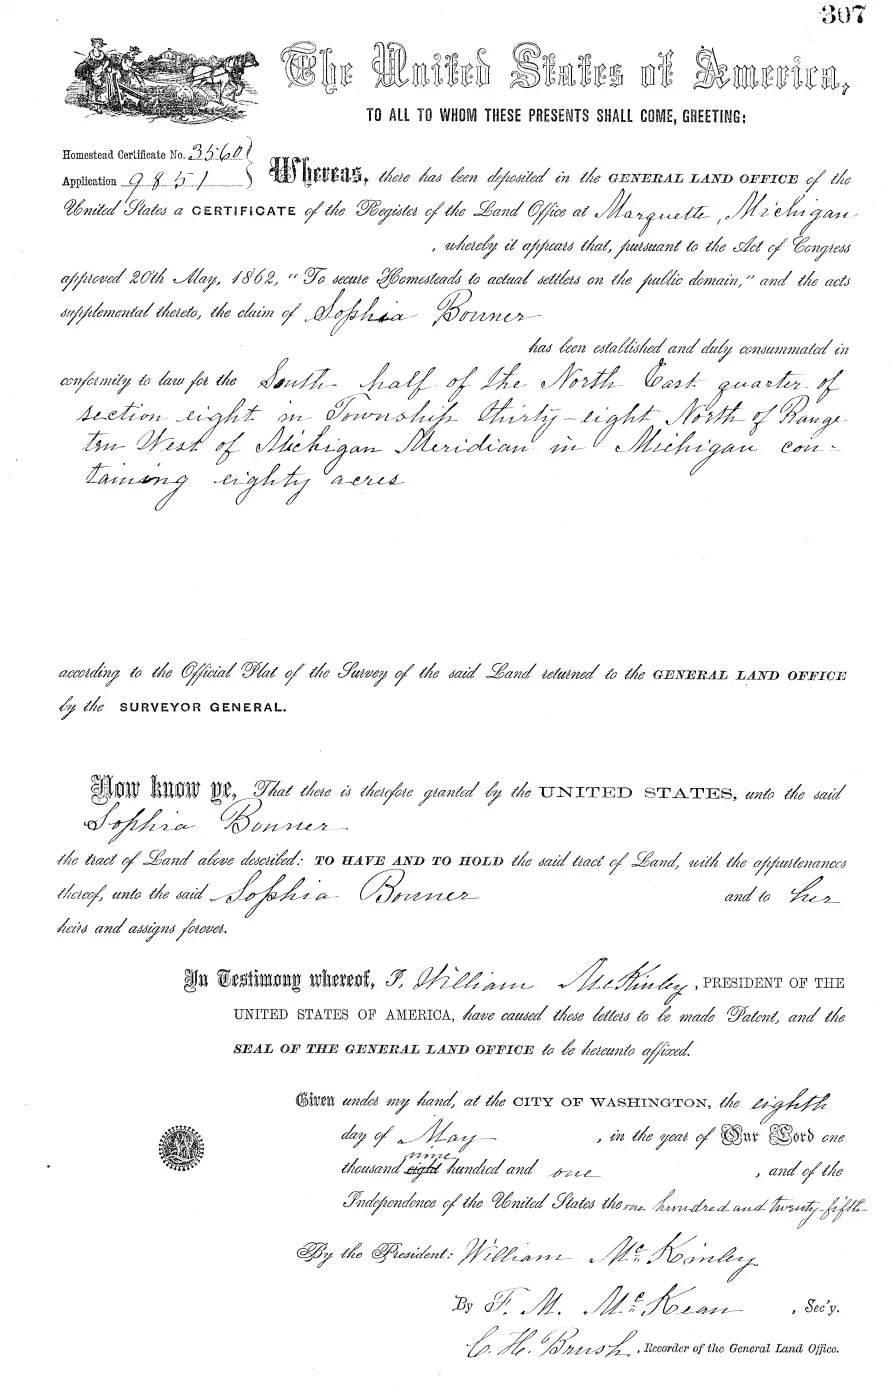 307
The United States of America,
TO ALL TO WHOM THESE PRESENTS SHALL COME, GREETING:
Homestead Certificate No. 3560
Application 9851
Whereas, there has been deposited in the GENERAL LAND OFFICE of the
United States a CERTIFICATE of the Register of the Land Office at Marquette, Michigan
, whereby it appears that, pursuant to the Act of Congress
approved 20th May, 1862, "To secure Homesteads to actual settlers on the public domain," and the acts
supplemental thereto, the claim of Sophia Bonner
has been established and duly consummated in
conformity to law for the South half of the North East quarter of
section eight in Township thirty-eight North of Range
ten West of Michigan Meridian in Michigan con-
taining eighty acres
according to the Official Plat of the Survey of the said Land returned to the GENERAL LAND OFFICE
by the SURVEYOR GENERAL.
Now know ye, That there is therefore granted by the UNITED STATES, unto the said
Sophia Bonner
the tract of Land above described: TO HAVE AND TO HOLD the said tract of Land, with the appurtenances
thereof, unto the said Sophia Bonner and to her
heirs and assigns forever.
In Testimony whereof, I, William McKinley, PRESIDENT OF THE
UNITED STATES OF AMERICA, have caused these letters to be made Patent, and the
SEAL OF THE GENERAL LAND OFFICE to be hereunto affixed.
Given under my hand, at the CITY OF WASHINGTON, the eighth
day of May, in the year of Our Lord one
nine
thousand eight hundred and one, and of the
Independence of the United States the one hundred and twenty-fifth
By the President: William McKinley
By F. M. McKean, Sec'y.
C. H. Brush, Recorder of the General Land Office.